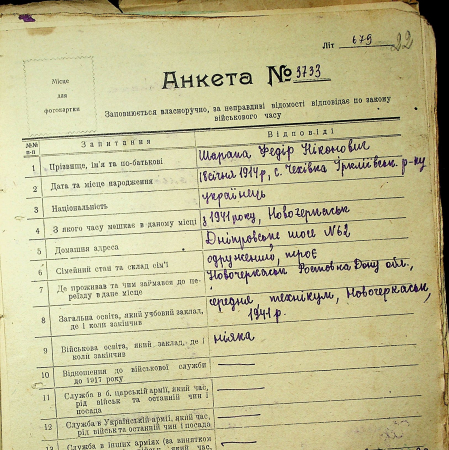 Літ 679 22
Місце
для
фотокартки
Анкета № 3733
Заповнюється власноручно, за неправдиві відомості відповідає по закону
військового часу
№№ п-п Запитання Відповіді
1 Прізвище, ім'я та по-батькові Шарапа Федір Ніконович
2 Дата та місце народження 18 січня 1914 р, с. Чехівка Іркліївськ. р-ну
3 Національність українець
4 З якого часу мешкає в даному місці з 1941 року, Новочеркаськ
5 Домашня адреса Дніпровське шосе №62
6 Сімейний стан та склад сім'ї одружений, троє
7 Де проживав та чим займався до переїзду в дане місце Новочеркаськ Ростовка Дону обл.,
8 Загальна освіта, який учбовий заклад, де і коли закінчив середня, технікум, Новочеркаськ, 1941 р.
9 Військова освіта, який заклад, де і коли закінчив ніяка
10 Відношення до військової служби до 1917 року —
11 Служба в б. царській армії, який час, рід військ та останній чин і посада —
12 Служба в Українській армії, який час, рід військ та останній чин і посада —
13 Служба в інших арміях (за винятком